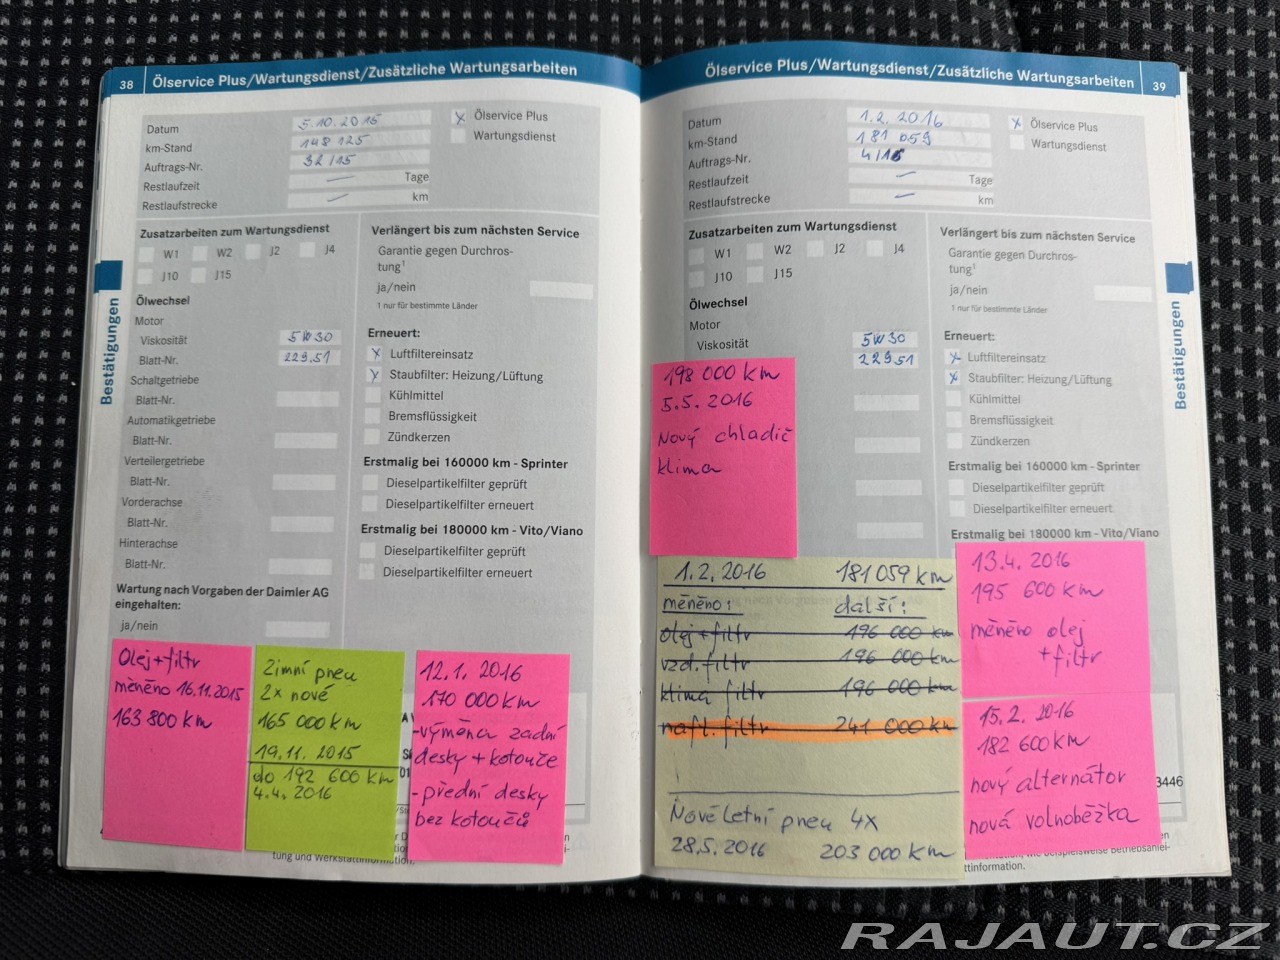 38 Ölservice Plus/Wartungsdienst/Zusätzliche Wartungsarbeiten
Datum 5.10.2015
km-Stand 148 125
Auftrags-Nr. 32/15
Restlaufzeit — Tage
Restlaufstrecke — km
x Ölservice Plus
Wartungsdienst
Zusatzarbeiten zum Wartungsdienst
W1 W2 J2 J4
J10 J15
Ölwechsel
Motor
Viskosität 5W30
Blatt-Nr. 229.51
Schaltgetriebe
Blatt-Nr.
Automatikgetriebe
Blatt-Nr.
Verteilergetriebe
Blatt-Nr.
Vorderachse
Blatt-Nr.
Hinterachse
Blatt-Nr.
Wartung nach Vorgaben der Daimler AG
eingehalten:
ja/nein
Verlängert bis zum nächsten Service
Garantie gegen Durchros-
tung¹
ja/nein
1 nur für bestimmte Länder
Erneuert:
x Luftfiltereinsatz
x Staubfilter: Heizung/Lüftung
Kühlmittel
Bremsflüssigkeit
Zündkerzen
Erstmalig bei 160000 km - Sprinter
Dieselpartikelfilter geprüft
Dieselpartikelfilter erneuert
Erstmalig bei 180000 km - Vito/Viano
Dieselpartikelfilter geprüft
Dieselpartikelfilter erneuert
Bestätigungen
Olej+filtr
měněno 16.11.2015
163 800 km
Zimní pneu
2x nové
165 000 km
19.11. 2015
do 192 600 km
4.4. 2016
12.1. 2016
170 000 km
-výměna zadní
desky + kotouče
-přední desky
bez kotoučů
tung und Werkstattinformation.
Ölservice Plus/Wartungsdienst/Zusätzliche Wartungsarbeiten 39
Datum 1.2. 2016
km-Stand 181 059
Auftrags-Nr. 4/16
Restlaufzeit — Tage
Restlaufstrecke — km
x Ölservice Plus
Wartungsdienst
Zusatzarbeiten zum Wartungsdienst
W1 W2 J2 J4
J10 J15
Ölwechsel
Motor
Viskosität 5W30
229.51
Verlängert bis zum nächsten Service
Garantie gegen Durchros-
tung¹
ja/nein
1 nur für bestimmte Länder
Erneuert:
x Luftfiltereinsatz
x Staubfilter: Heizung/Lüftung
Kühlmittel
Bremsflüssigkeit
Zündkerzen
Erstmalig bei 160000 km - Sprinter
Dieselpartikelfilter geprüft
Dieselpartikelfilter erneuert
Erstmalig bei 180000 km - Vito/Viano
Bestätigungen
198 000 km
5.5. 2016
Nový chladič
klima
1.2. 2016 181 059 km
měněno: další:
olej+filtr 196 000 km
vzd. filtr 196 000 km
klima filtr 196 000 km
naft. filtr 241 000 km
Nové letní pneu 4x
28.5. 2016 203 000 km
13.4. 2016
195 600 km
měněno olej
+filtr
15.2. 2016
182 600 km
nový alternátor
nová volnoběžka
3446
ttinformation.
RAJAUT.CZ